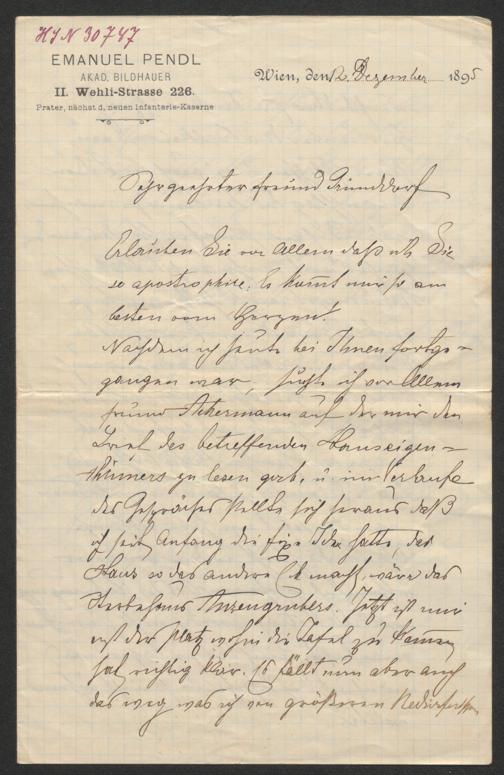 HIN 30747
EMANUEL PENDL
AKAD. BILDHAUER
II. Wehli-Strasse 226.
Prater, nächst d. neuen Infanterie-Kaserne
Wien, den 2. Dezember 1895
Sehr geehrter Freund
Erlauben Sie vor Allem daß ich Sie
so apostrophire. Es kommt mir so am
besten vom Herzen!
Nachdem ich heute bei Ihnen fortge-
gangen war, suchte ich vor Allem
Freund Ackermann auf der mir den
Brief des betreffenden Hauseigen-
thümers zu lesen gab, u. im Verlaufe
des Gespräches stellte sich heraus daß
ich seit Anfang die fixe Idee hatte, das
Haus so das andere Eck macht, wäre das
Sterbehaus Anzengrubers. Jetzt ist mir
erst der Platz wohin die Tafel zu kommen
hat richtig klar. Es fällt nun aber auch
das weg was ich von größeren